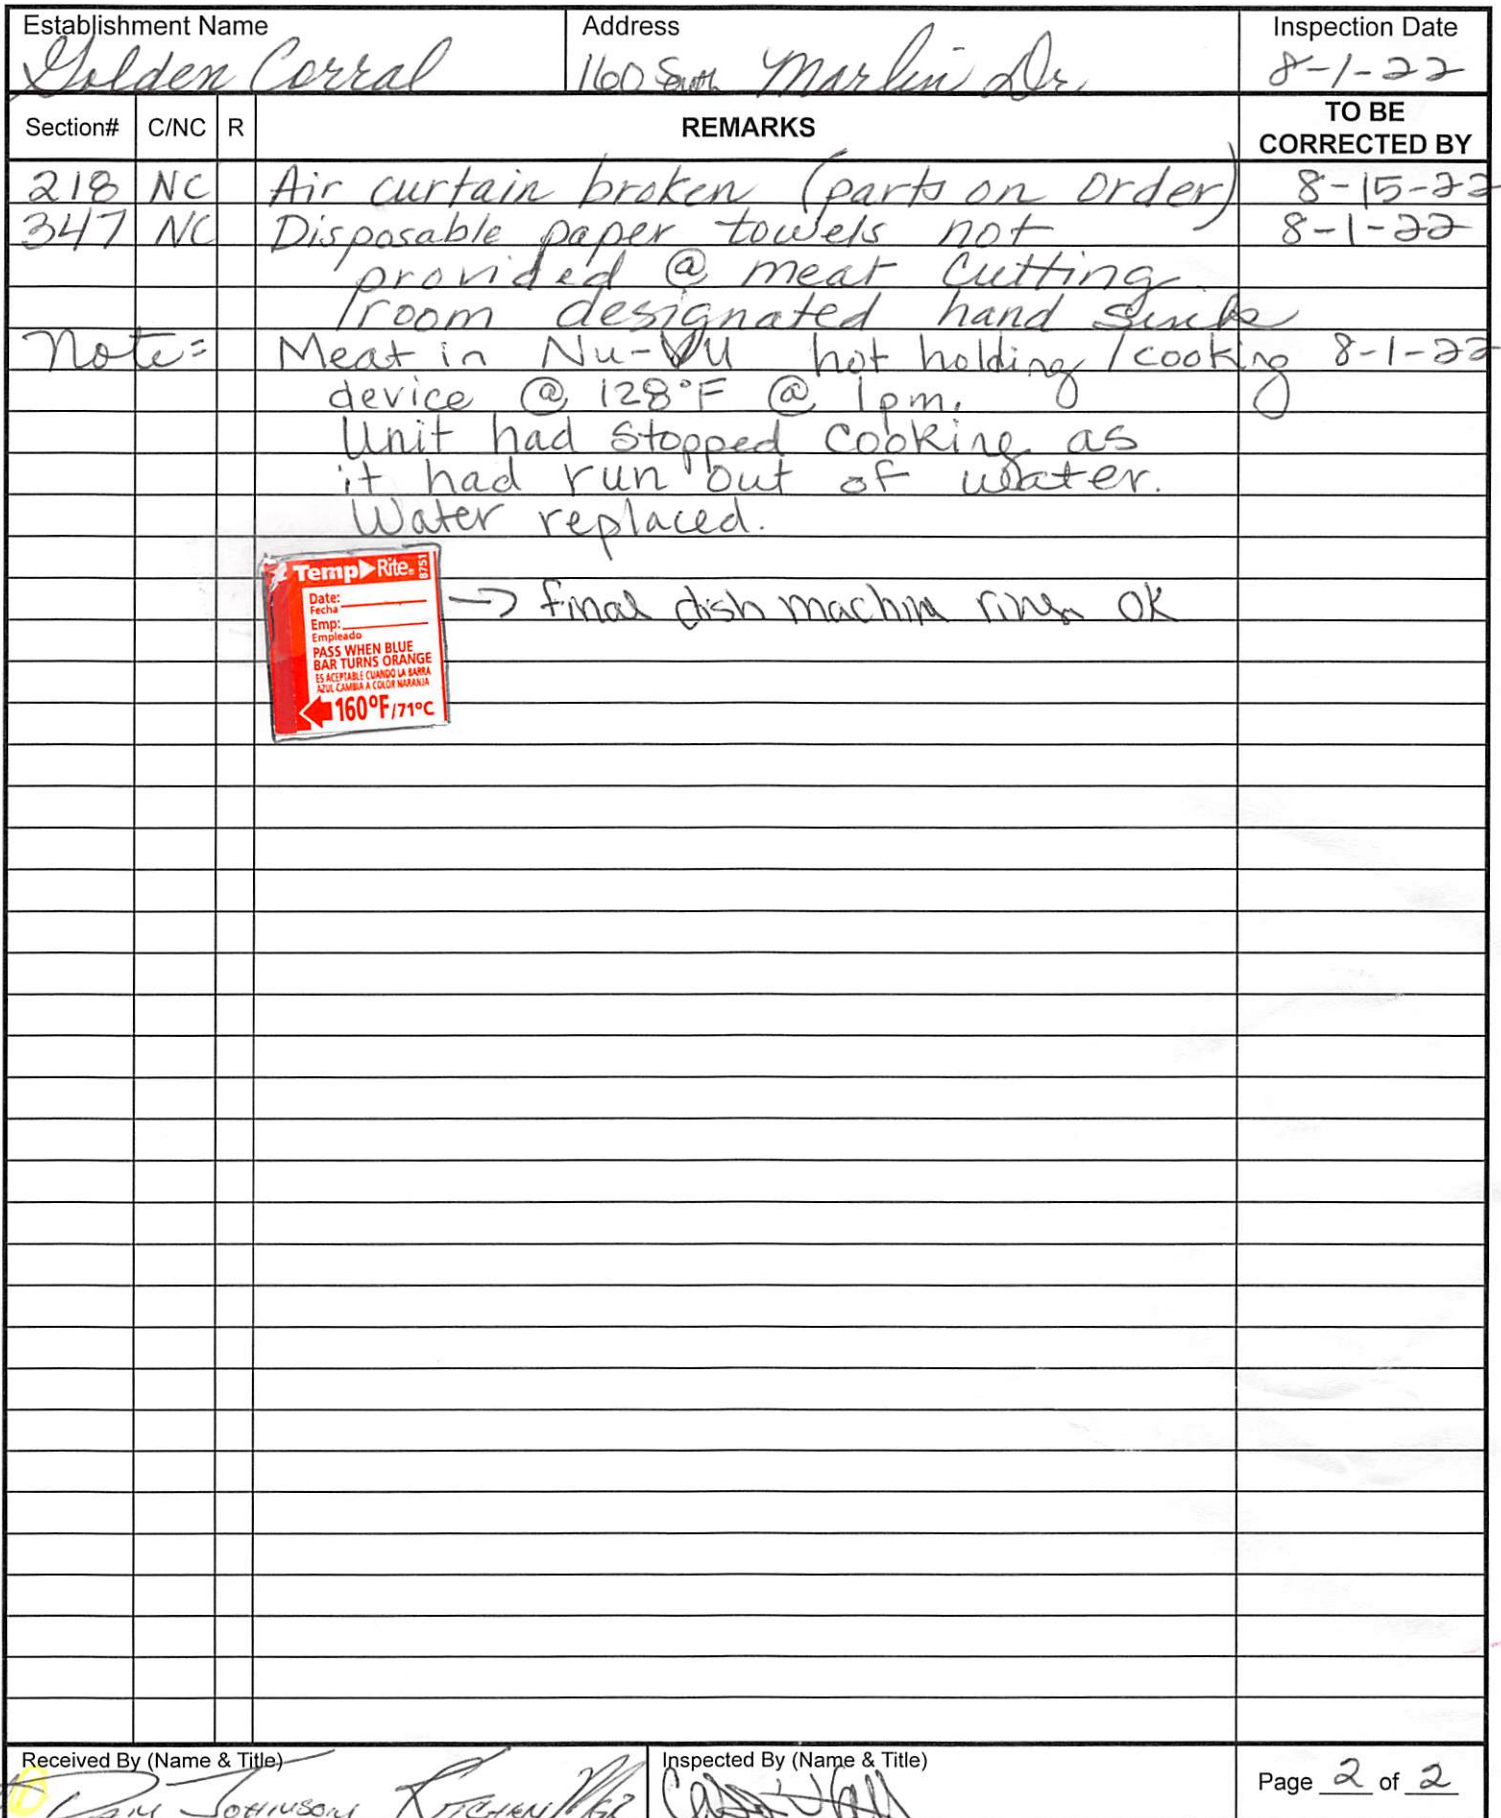 Establishment Name
Golden Corral
Address
1160 South Marlin Dr.
Inspection Date
8-1-22
Section# C/NC R REMARKS TO BE CORRECTED BY
218 NC Air curtain broken (parts on order) 8-15-22
347 NC Disposable paper towels not 8-1-22
provided @ meat cutting
room designated hand sink
Note: Meat in Nu-VU hot holding/cooking 8-1-22
device @ 128°F @ 1pm.
Unit had stopped cooking as
it had run out of water.
Water replaced.
Temp Rite® 8751
Date:
Fecha
Emp:
Empleado
PASS WHEN BLUE
BAR TURNS ORANGE
ES ACEPTABLE CUANDO LA BARRA
AZUL CAMBIA A COLOR NARANJA
160°F/71°C
→ final dish machine rinse OK
Received By (Name & Title)
Johnson Kitchen Mgr
Inspected By (Name & Title)
Page 2 of 2